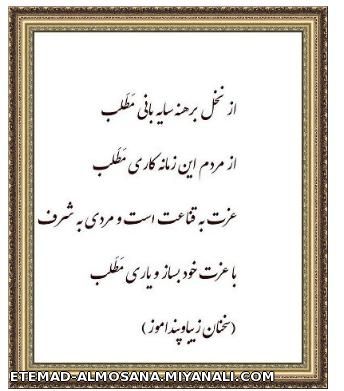 از نخل برهنه سایه بانی مَطَلب
از مردم این زمانه کاری مَطَلب
عزت به قناعت است و مردی به شرف
با عزت خود بساز و یاری مَطَلب
(سخنان زیبا و پندآموز)
ETEMAD-ALMOSANA.MIYANALI.COM